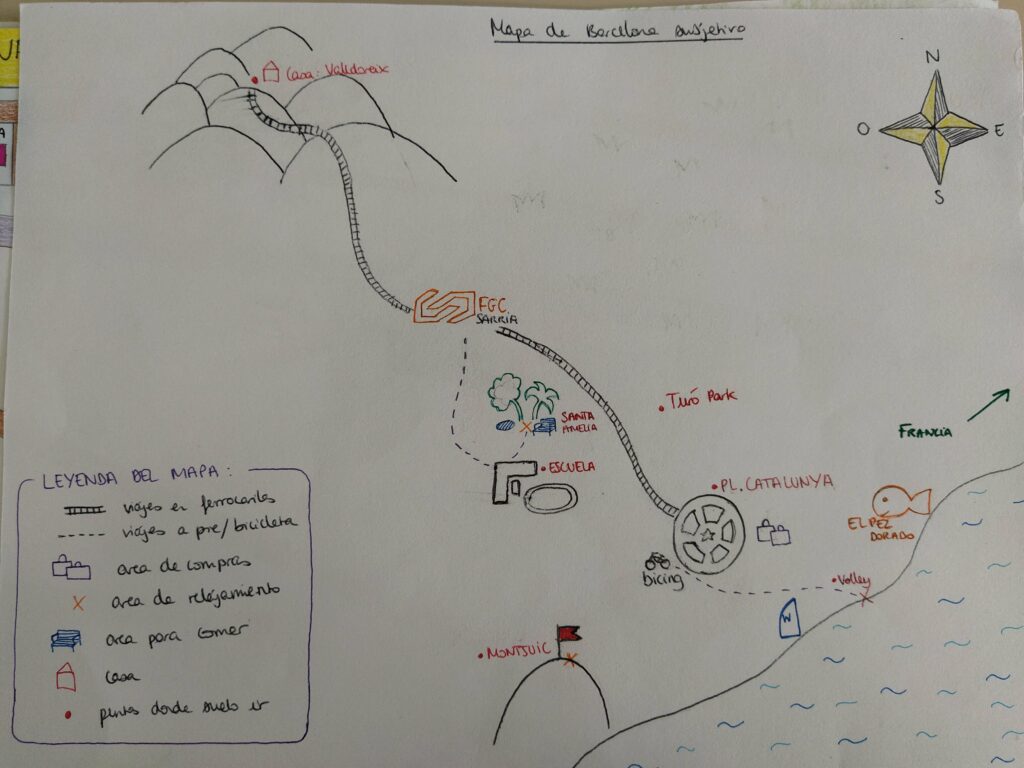 Mapa de Barcelona subjetivo
N
O
E
S
Casa: Valldoreix
FGC
SARRIA
SANTA
AMELIA
ESCUELA
Turó Park
FRANCIA
PL. CATALUNYA
EL PEZ
DORADO
bicing
Volley
W
MONTJUIC
LEYENDA DEL MAPA:
viajes en ferrocarriles
viajes a pie/bicicleta
area de compras
area de relajamiento
area para comer
casa
puntos donde suelo ir